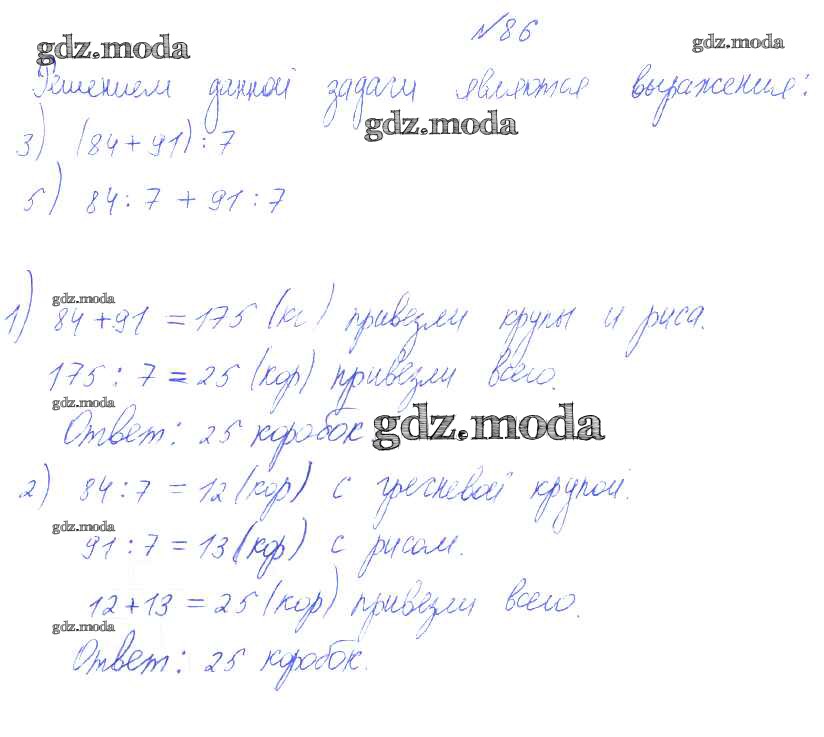 №86
gdz.moda
gdz.moda
Решением данной задачи являются выражения:
gdz.moda
3) (84+91):7
5) 84:7+91:7
gdz.moda
1) 84+91=175 (кг) привезли крупы и риса.
175:7=25 (кор) привезли всего.
gdz.moda
Ответ: 25 коробок
gdz.moda
2) 84:7=12 (кор) с гречневой крупой.
gdz.moda
91:7=13 (кор) с рисом.
12+13=25 (кор) привезли всего.
gdz.moda
Ответ: 25 коробок.